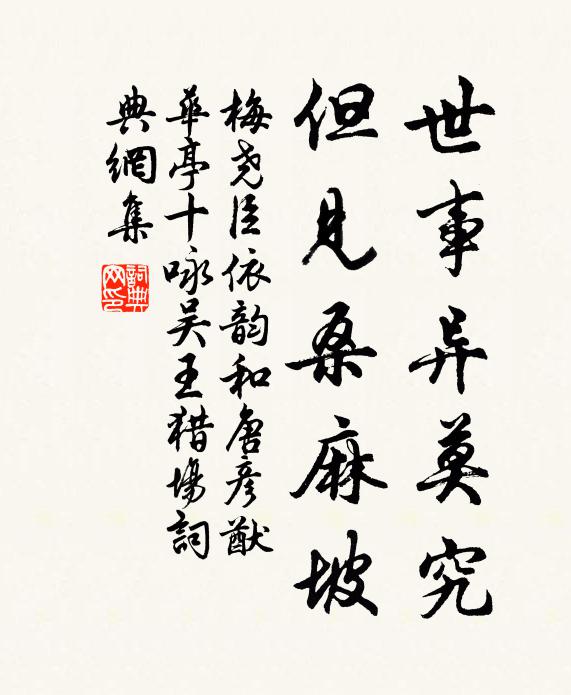 世事异莫究
但见桑麻坡
梅尧臣依韵和唐彦猷
华亭十咏吴王猎场词
典網集
詞典網印